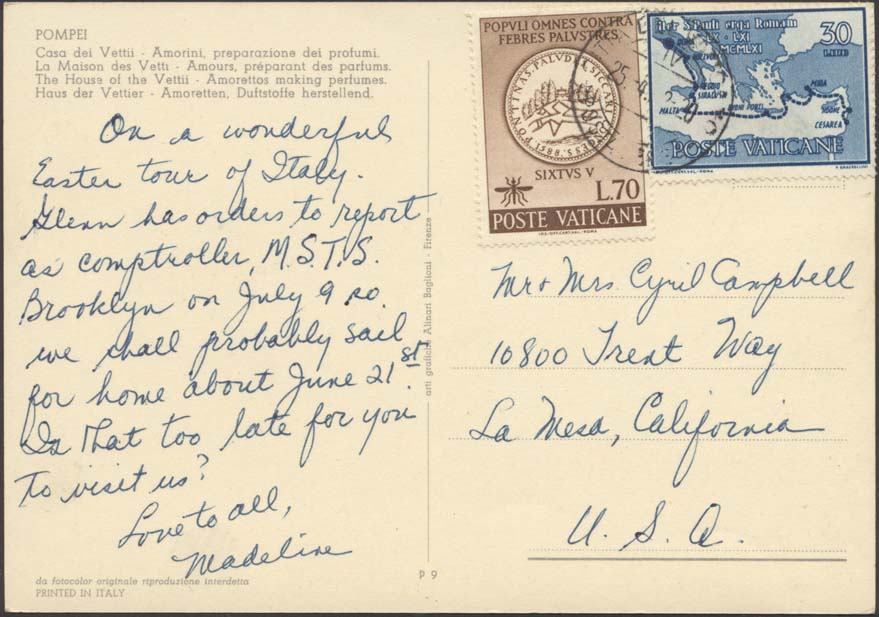 POMPEI
Casa dei Vettii - Amorini, preparazione dei profumi.
La Maison des Vetti - Amours, préparant des parfums.
The House of the Vettii - Amorettos making perfumes.
Haus der Vettier - Amoretten, Duftstoffe herstellend.
On a wonderful
Easter tour of Italy.
Glenn has orders to report
as comptroller, M.S.T.S.
Brooklyn on July 9 so
we shall probably sail
for home about June 21st.
Is that too late for you
to visit us?
Love to all,
Madeline
da fotocolor originale riproduzione interdetta
PRINTED IN ITALY
arti grafiche Alinari Baglioni - Firenze
P 9
POPVLI OMNES CONTRA
FEBRES PALVSTRES
SIXTVS V
L.70
POSTE VATICANE
Iter S. Pauli erga Romam
LX - LXI
MCMLXI
30
LIRE
MALTA
REGGIO
SIRACUSA
BUONI PORTI
MIRA
SIDONE
CESAREA
POSTE VATICANE
Mr & Mrs Cyril Campbell
10800 Trent Way
La Mesa, California
U. S. A.